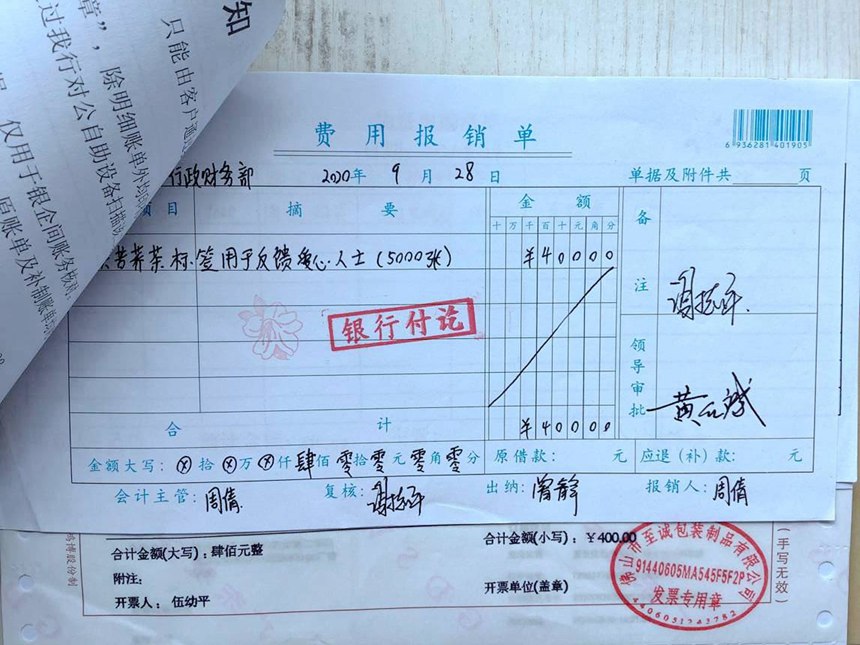 知
只能由客户通
章”，除明细账单外均
过我行对公自助设备扫描
仅用于银企间账务核对
原账单及补制账单
费用报销单
6 936281 401905
行政财务部 2020年 9 月 28 日 单据及附件共 页
项目 摘要 金额 备注
十万千百十元角分
苦荞茶标签用于反馈爱心人士(5000张) ¥40000
银行付讫
领导审批
合计 ¥40000
金额大写：ⓧ拾ⓧ万ⓧ仟肆佰零拾零元零角零分 原借款： 元 应退（补）款： 元
会计主管：周倩 复核： 出纳：曾静 报销人：周倩
鸿博股份制
合计金额(大写)：肆佰元整 合计金额(小写)：￥400.00
附注：
开票人：伍幼平 开票单位(盖章)
佛山市至诚包装制品有限公司
91440605MA545F5F2P
发票专用章
4406051243782
(手写无效)